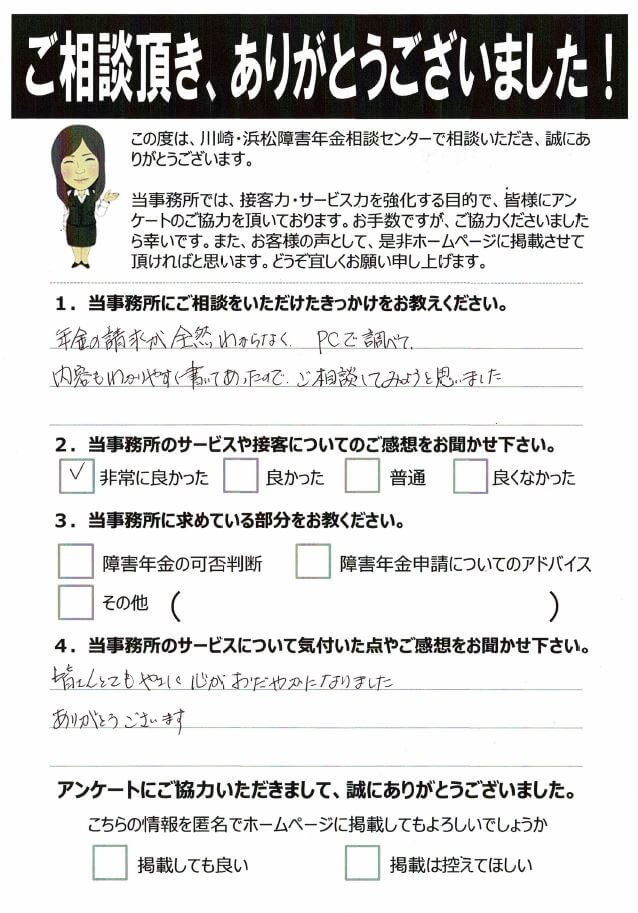 ご相談頂き、ありがとうございました！
この度は、川崎・浜松障害年金相談センターで相談いただき、誠にあ
りがとうございます。
当事務所では、接客力・サービス力を強化する目的で、皆様にアン
ケートのご協力を頂いております。お手数ですが、ご協力くださいました
ら幸いです。また、お客様の声として、是非ホームページに掲載させて
頂ければと思います。どうぞ宜しくお願い申し上げます。
１．当事務所にご相談をいただけたきっかけをお教えください。
年金の請求が全然わからなく、PCで調べて、
内容もわかりやすく書いてあったので、ご相談してみようと思いました
２．当事務所のサービスや接客についてのご感想をお聞かせ下さい。
✓ 非常に良かった 良かった 普通 良くなかった
３．当事務所に求めている部分をお教ください。
障害年金の可否判断 障害年金申請についてのアドバイス
その他 ( )
４．当事務所のサービスについて気付いた点やご感想をお聞かせ下さい。
皆さんとてもやさしく心がおだやかになりました
ありがとうございます
アンケートにご協力いただきまして、誠にありがとうございました。
こちらの情報を匿名でホームページに掲載してもよろしいでしょうか
掲載しても良い 掲載は控えてほしい